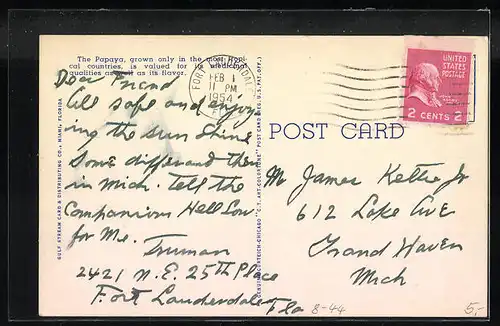 The Papaya, grown only in the most tropi-
cal countries, is valued for its medicinal
qualities as well as its flavor.
Dear Friend
All safe and enjoy
ing the sun shine
Some differand then
in Mich. Tell the
Companions Hell Low
for Me.
Truman
2421 N.E. 25th Place
Fort Lauderdale
Fla
GULF STREAM CARD & DISTRIBUTING CO., MIAMI, FLORIDA
FORT LAUDERDALE
FEB 1
11 PM
1954
FLA.
GENUINE CURTEICH-CHICAGO "C.T. ART-COLORTONE" POST CARD (REG. U.S. PAT. OFF.)
POST CARD
UNITED
STATES
POSTAGE
2 CENTS 2
M James Kettle Jr
612 Lake Ave
Grand Haven
Mich
8-44
5,-